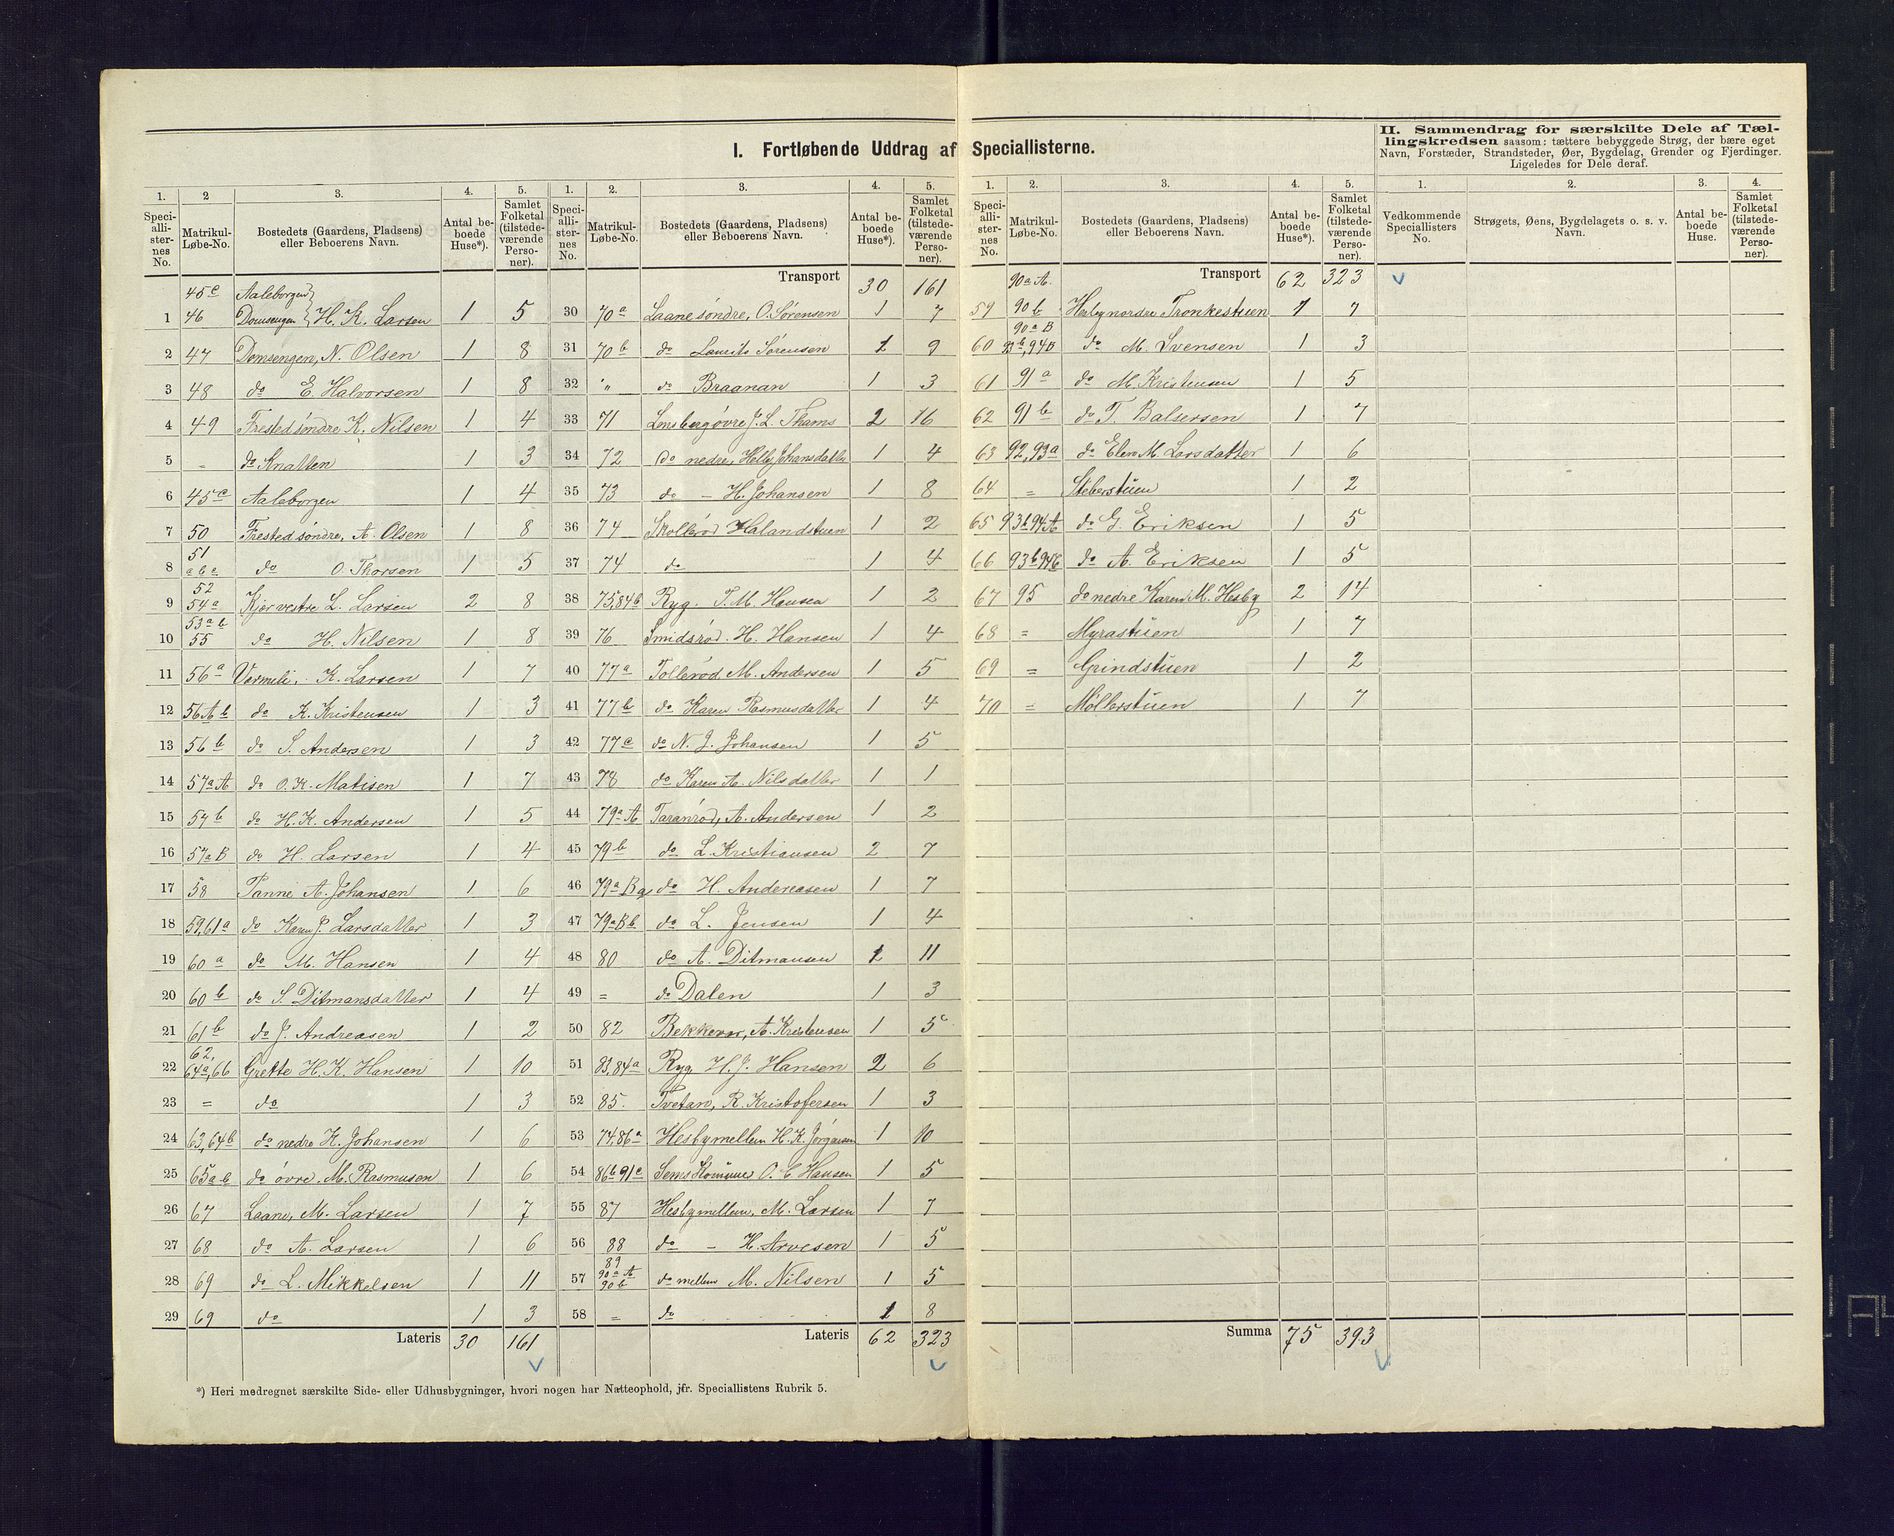 I. Fortløbende Uddrag af Speciallisterne.
II. Sammendrag for særskilte Dele af Tæl-
lingskredsen saasom: tættere bebyggede Strøg, der bære eget
Navn, Forstæder, Strandsteder, Øer, Bygdelag, Grender og Fjerdinger.
Ligeledes for Dele deraf.
1. 2 3. 4. 5. 1. 2. 3. 4. 5. 1. 2. 3. 4. 5. 1. 2. 3. 4.
Speciallisternes No. Matrikul-Løbe-No. Bostedets (Gaardens, Pladsens) eller Beboerens Navn. Antal beboede Huse*). Samlet Folketal (tilstedeværende Personer).
Speciallisternes No. Matrikul-Løbe-No. Bostedets (Gaardens, Pladsens) eller Beboerens Navn. Antal beboede Huse*). Samlet Folketal (tilstedeværende Personer).
Speciallisternes No. Matrikul-Løbe-No. Bostedets (Gaardens, Pladsens) eller Beboerens Navn. Antal beboede Huse*). Samlet Folketal (tilstedeværende Personer).
Vedkommende Speciallisters No. Strøgets, Øens, Bygdelagets o. s. v. Navn. Antal beboede Huse. Samlet Folketal (tilstedeværende Personer).
45c Aaleborgen
1 46 Domsengen H. K. Larsen 1 5
2 47 Domsengen, N. Olsen 1 8
3 48 do E. Halvorsen 1 8
4 49 Frestedsøndre K. Nilsen 1 4
5 - do Knatten 1 3
6 45c Aaleborgen 1 4
7 50 Frestedsøndre, A. Olsen 1 8
8 51 a b c do O. Thorsen 1 5
9 52 54a Kjær vestre L. Larsen 2 8
10 53a b 55 do H. Nilsen 1 8
11 56a Vermeli, K. Larsen 1 7
12 56A b do K. Kristensen 1 3
13 56b do S. Andersen 1 3
14 57a A do O. K. Matisen 1 7
15 57b do H. K. Andersen 1 5
16 57a B do H. Larsen 1 4
17 58 Tanne A. Johansen 1 6
18 59,61a do Karen J. Larsdatter 1 3
19 60a do M. Hansen 1 4
20 60b do S. Ditmansdatter 1 4
21 61b do J. Andreasen 1 2
22 62, 64a,66 Grette H. K. Hansen 1 10
23 = do 1 3
24 63,64b do nedre K. Johansen 1 6
25 65a-b do øvre M. Rasmusen 1 6
26 67 Laane, M. Larsen 1 7
27 68 do A. Larsen 1 6
28 69 do L. Mikkelsen 1 11
29 69 do 1 3
Lateris 30 161
Transport 30 161
30 70a Laane søndre, O. Sørensen 1 7
31 70b do Laurits Sørensen 1 9
32 " do Braanan 1 3
33 71 Lensberg øvre J. L. Thams 2 16
34 72 Do nedre, Helle Johansdatter 1 4
35 73 do - H. Johansen 1 8
36 74 Skollerød Halandstuen 1 2
37 74 do 1 4
38 75,84b Ryg. T. M. Hansen 1 2
39 76 Smidsrød H. Hansen 1 4
40 77a Tollerød M. Andersen 1 5
41 77b do Karen Rasmusdatter 1 4
42 77c do N. J. Johansen 1 5
43 78 do Karen A. Nilsdatter 1 1
44 79a A Taranrød, A. Andersen 1 2
45 79b do L. Kristiansen 2 7
46 79a Ba do H. Andereasen 1 7
47 79a Bb do L. Jensen 1 4
48 80 do A. Ditmansen 1 11
49 = do Dalen 1 3
50 82 Bekkevar, A. Kristensen 1 5
51 83,84a Ryg H. J. Hansen 2 6
52 85. Tvetan, R. Kristofersen 1 3
53 74,86a Hesbymellem H. K. Jørgensen 1 10
54 86b 91c Sems Kommune O. C. Hansen 1 5
55 87 Hesbymellem, M. Larsen 1 7
56 88 do - H. Arvesen 1 5
57 89 90a A 90b do mellem M. Nilsen 1 5
58 = do 1 8
Lateris 62 323
90a A. Transport 62 323
59 90b Hesbynordre Tronkestuen 1 7
60 90a B 93b,94B do M. Svensen 1 3
61 91a do M. Kristensen 1 5
62 91b do T. Balsersen 1 7
63 92,93a do Elen M. Larsdatter 1 6
64 = Steberstuen 1 2
65 93b 94A do G. Eriksen 1 5
66 93b 94C do A. Eriksen 1 5
67 95 do nedre Karen M. Hesby 2 14
68 = Myrastuen 1 7
69 = Grindstuen 1 2
70 = Møllerstuen 1 7
Summa 75 393
*) Heri medregnet særskilte Side- eller Udhusbygninger, hvori nogen har Natteophold, jfr. Speciallistens Rubrik 5.